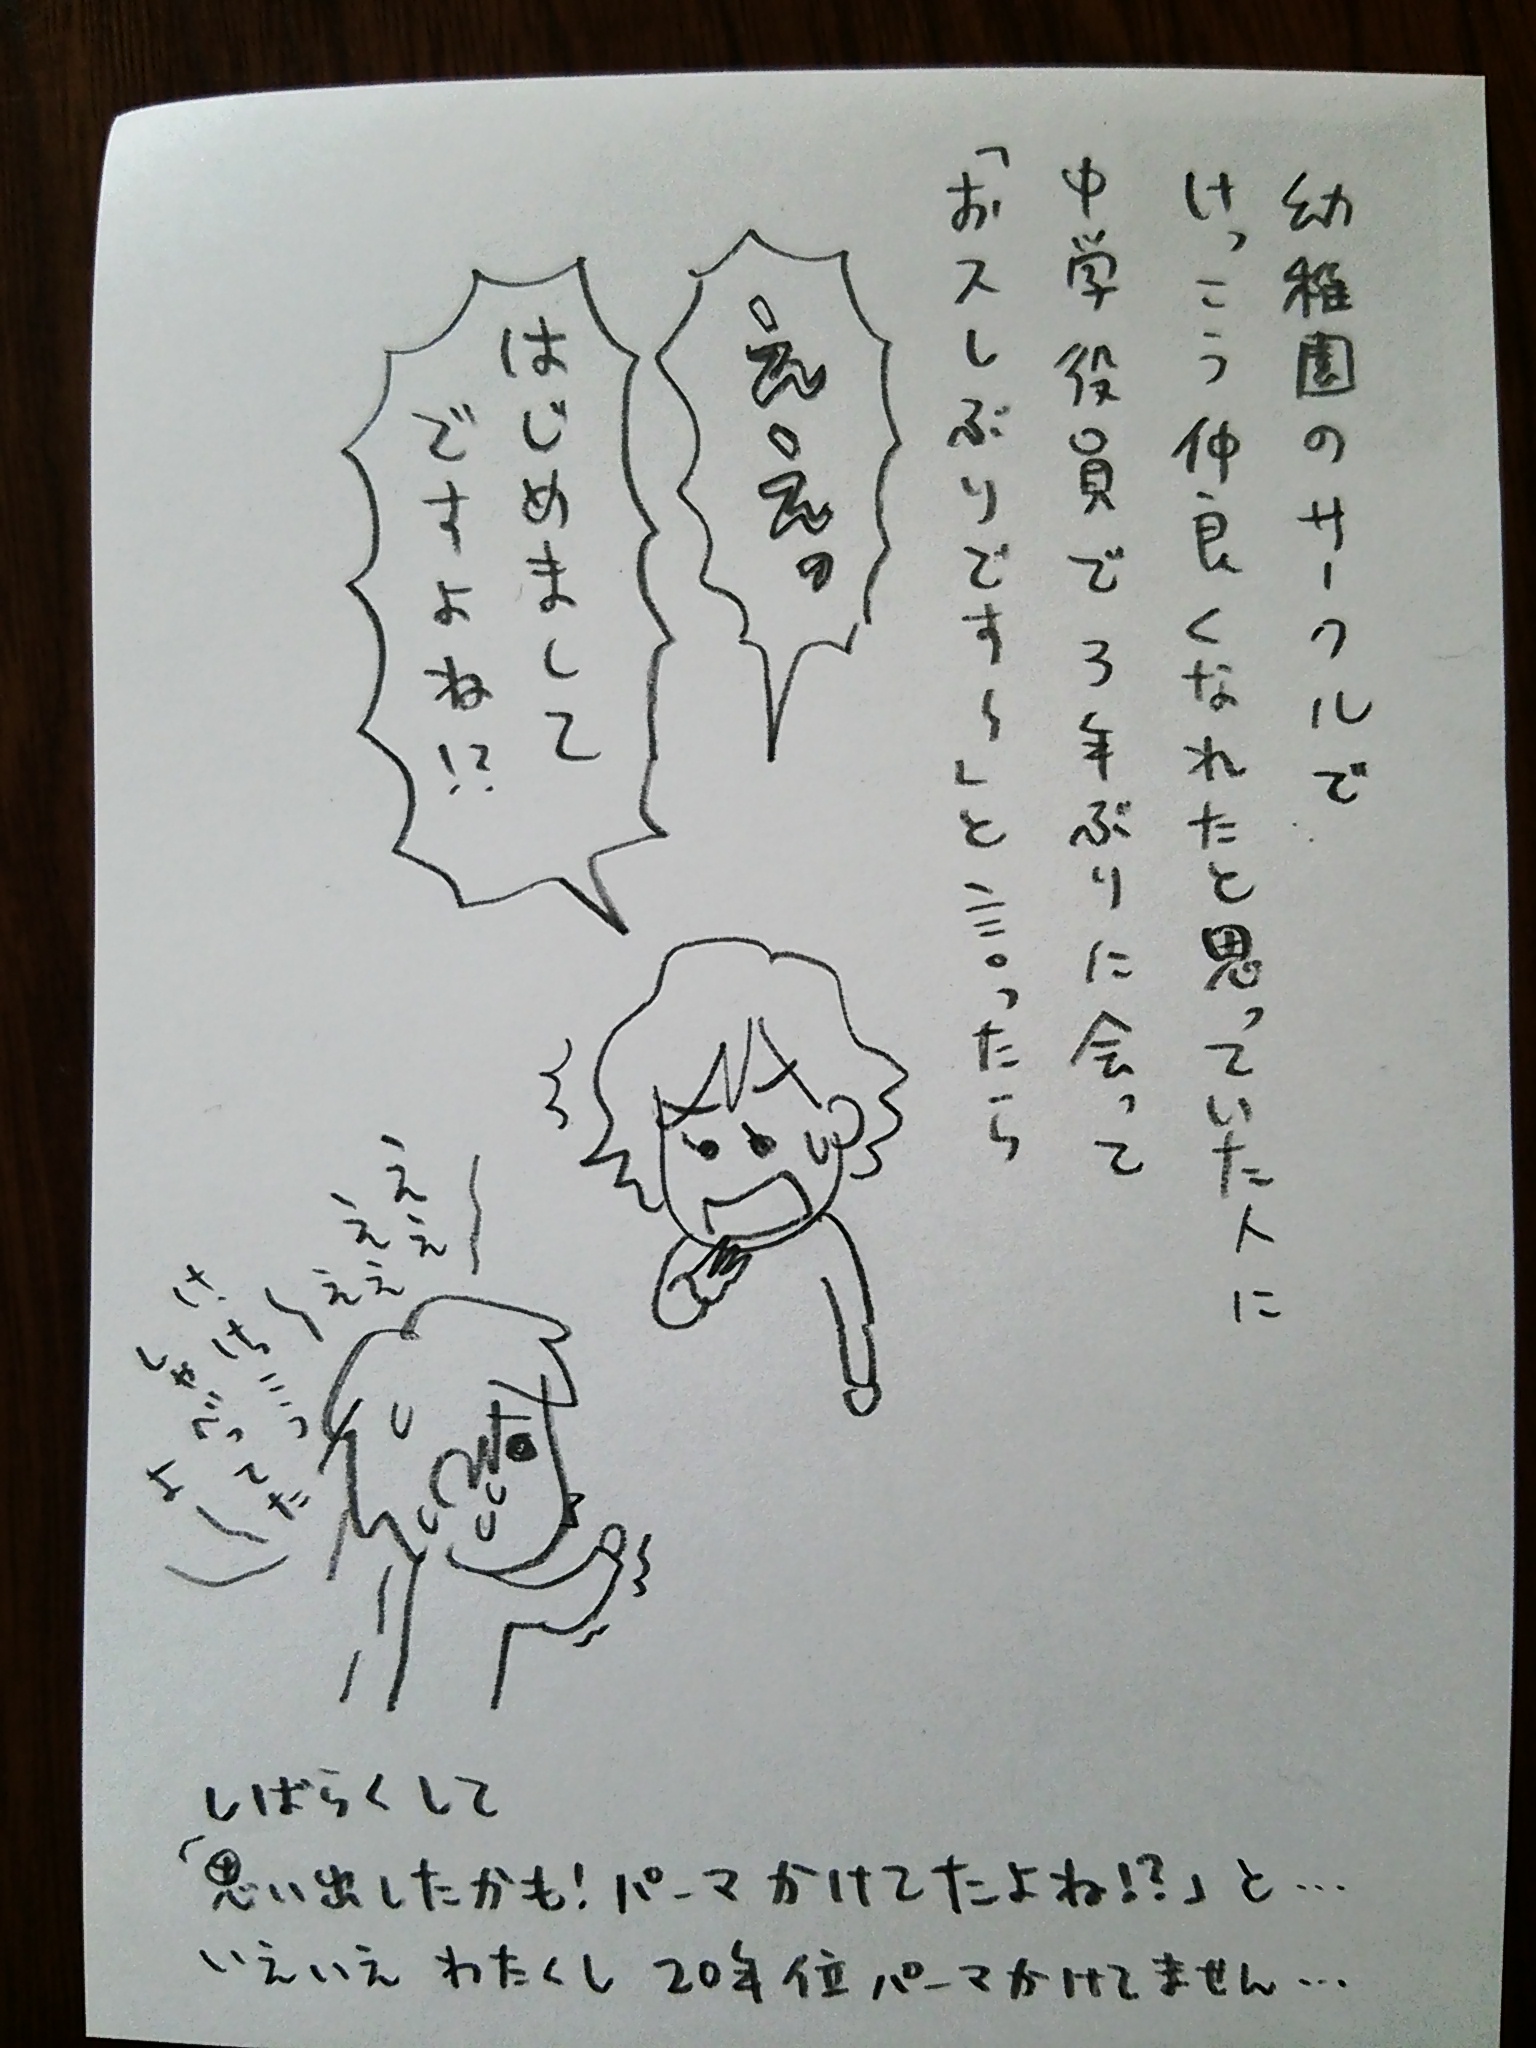 幼稚園のサークルで
けっこう仲良くなれたと思っていた人に
中学役員で3年ぶりに会って
「おスしぶりですー」と言ったら
ええっ
はじめまして
ですよね!?
えええええー
けっこう
しゃべってた
よー
しばらくして
「思い出したかも!パーマかけてたよね!?」と…
いえいえ わたくし 20年位パーマかけてません…